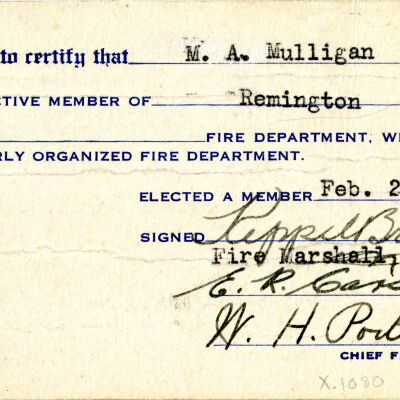 to certify that M. A. Mulligan
CTIVE MEMBER OF Remington
FIRE DEPARTMENT, W
RLY ORGANIZED FIRE DEPARTMENT.
ELECTED A MEMBER Feb. 2
SIGNED Keppel B
Fire Marshall,
E. R.
W. H.
CHIEF F
X.1080